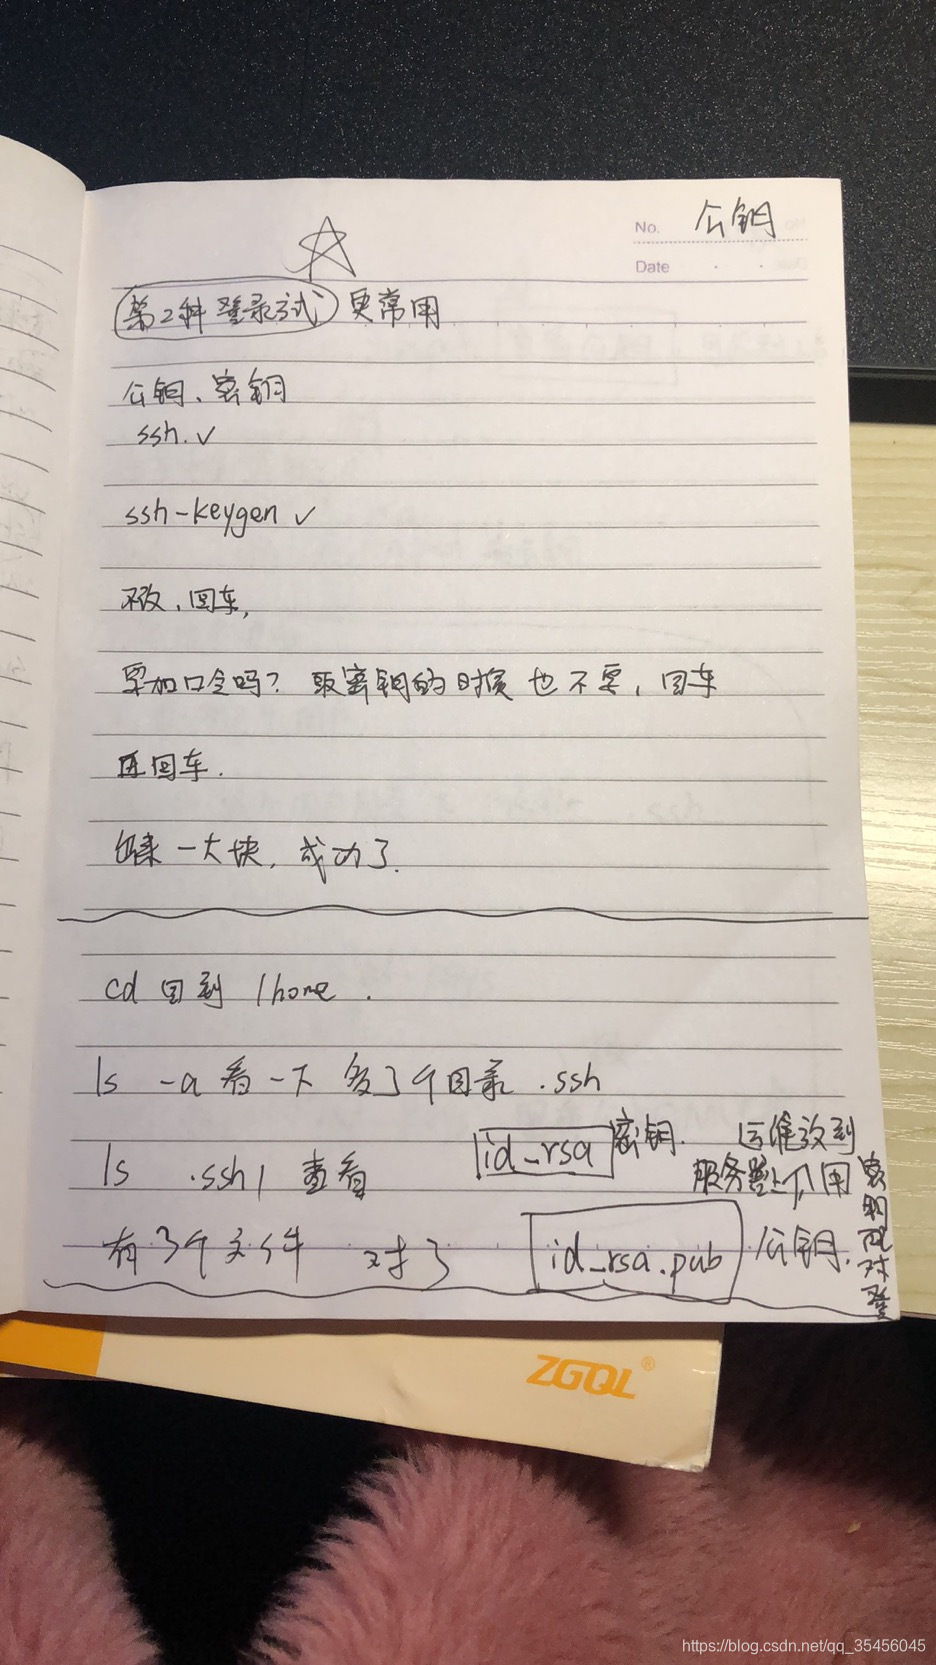 No. 公钥
Date
第2种登录方式 更常用
公钥、密钥
ssh. ✓
ssh-keygen ✓
不改，回车，
要加口令吗？取密钥的时候也不要，回车
再回车.
出来一大块，成功了.
cd 回到 /home .
ls -a 看一下 多了个目录 .ssh
ls .ssh/ 查看
id_rsa 密钥.
运维放到
服务器上，用
密钥配对登
有了个文件 对了
id_rsa.pub 公钥.
ZGQL®
https://blog.csdn.net/qq_35456045